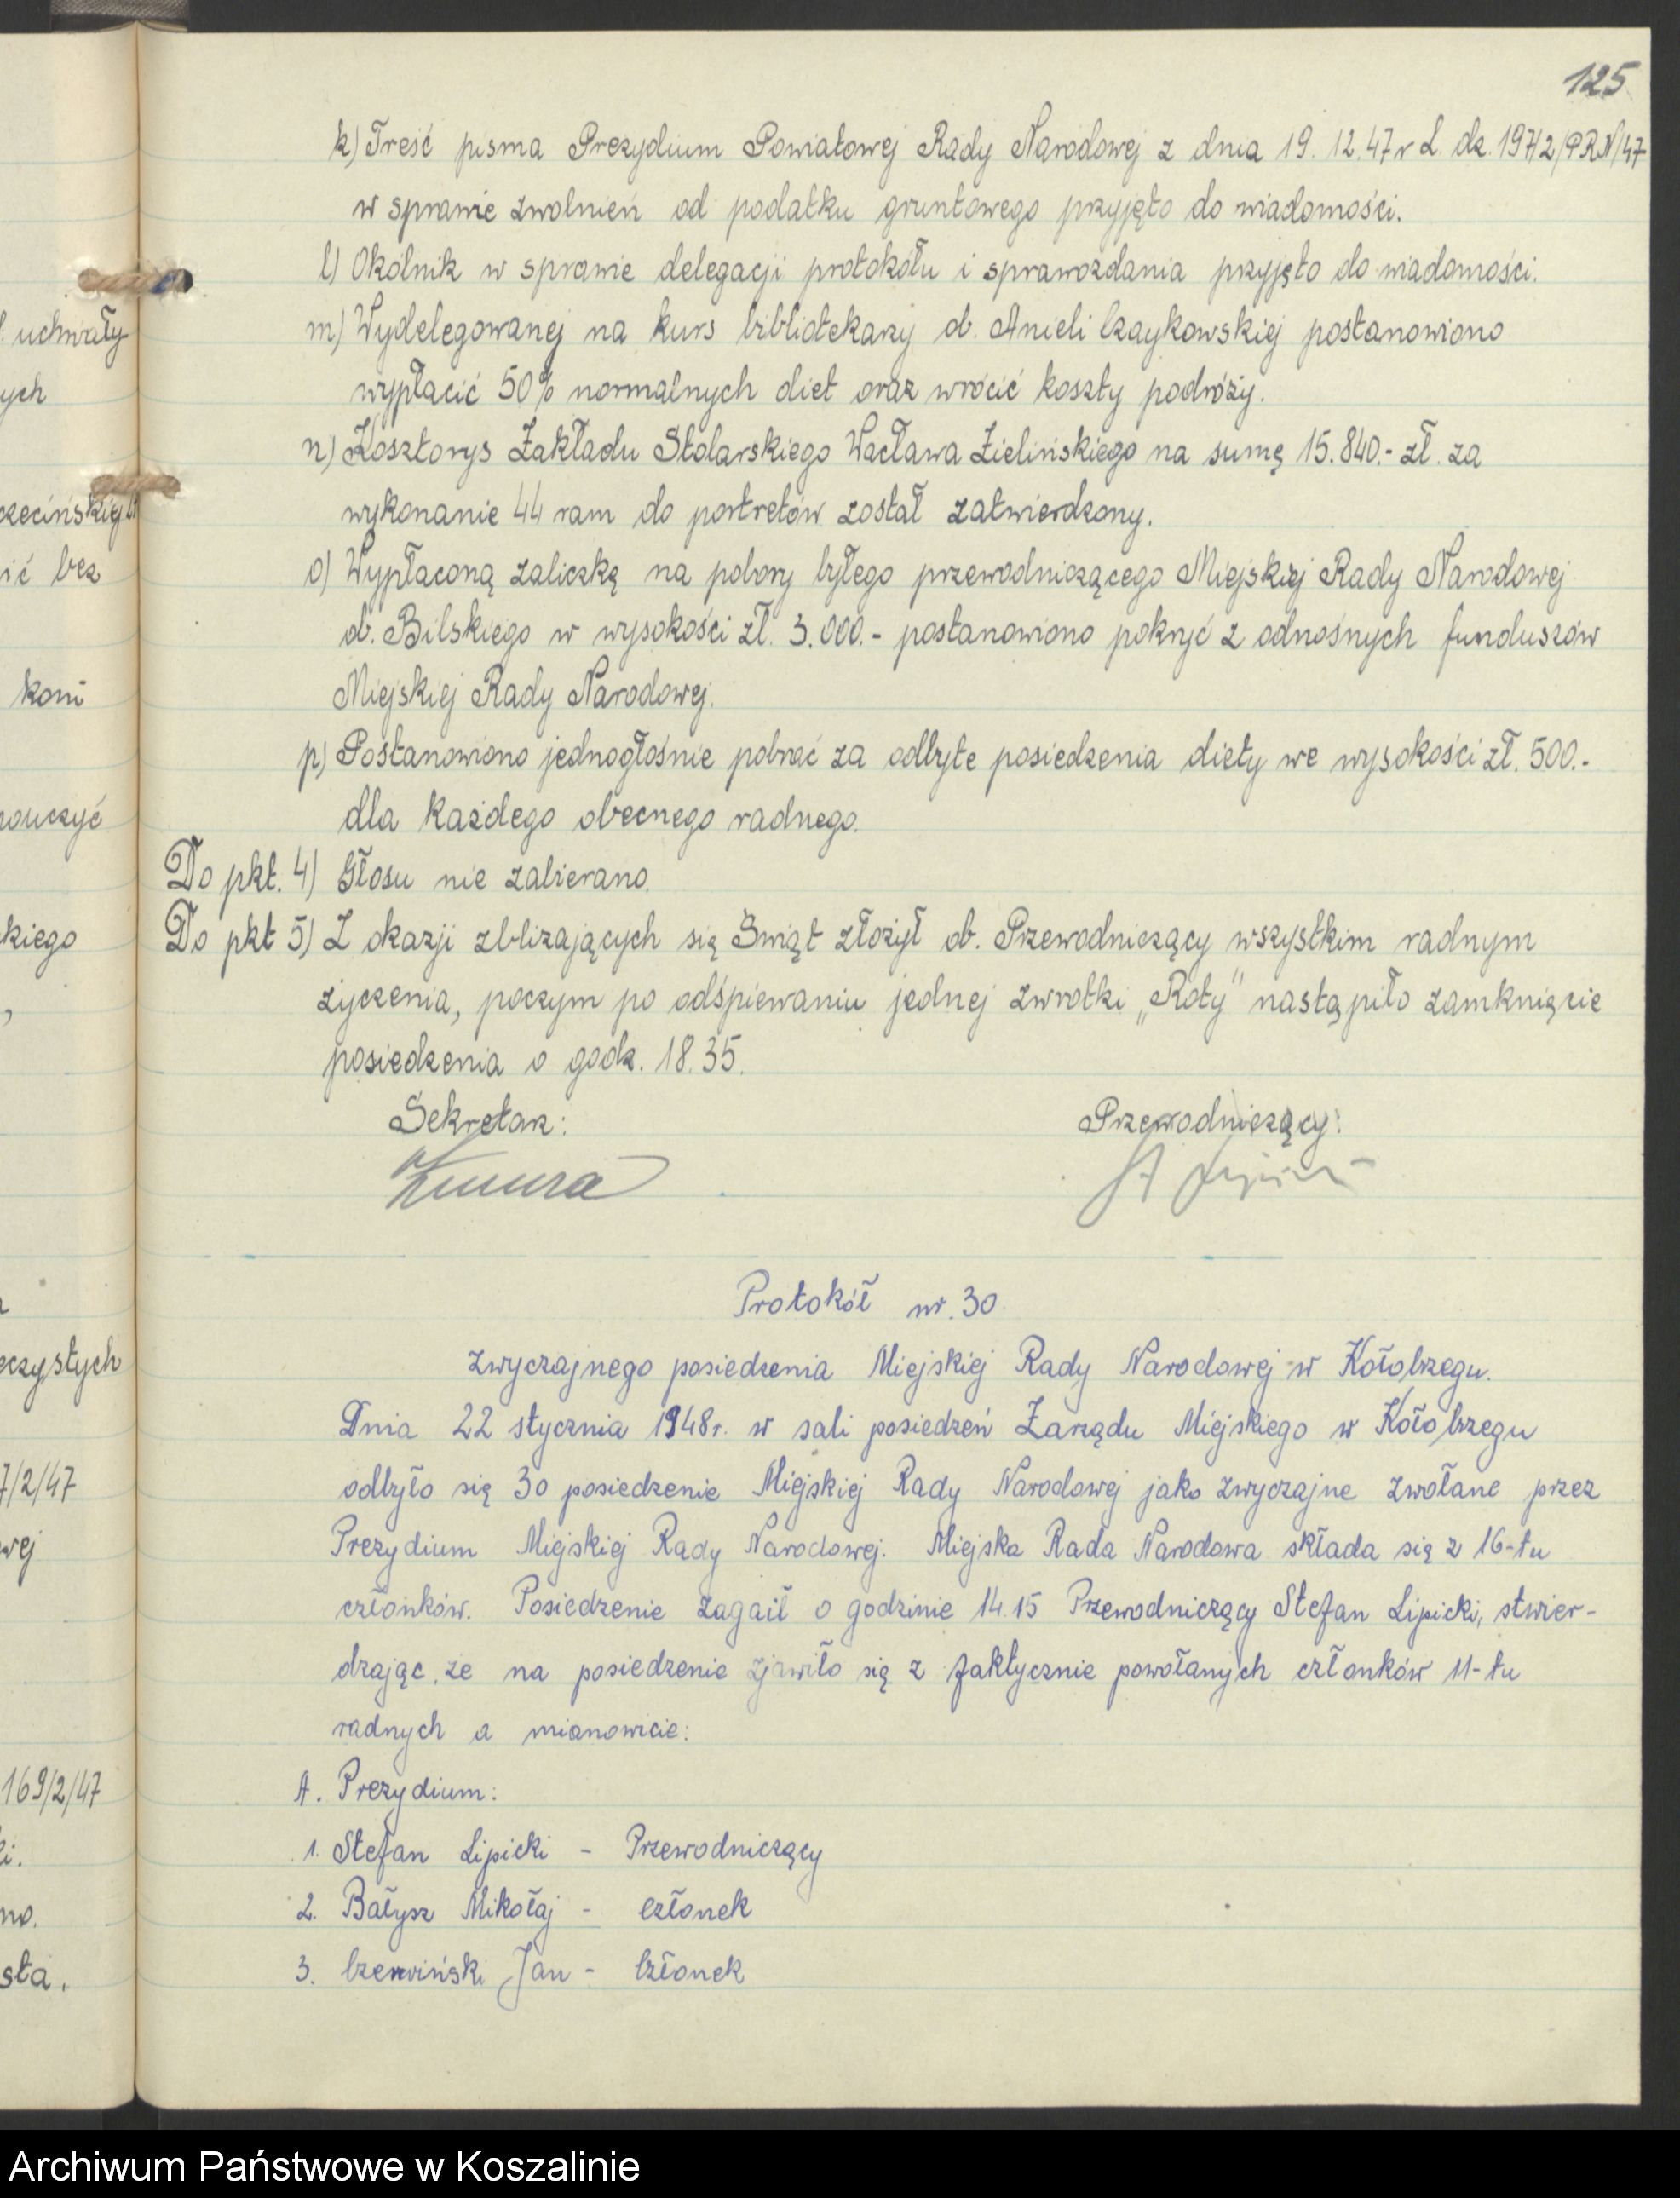 125
k) Treść pisma Prezydium Powiatowej Rady Narodowej z dnia 19.12.47 r L. dz. 197/2/PRN/47
w sprawie zwolnień od podatku gruntowego przyjęto do wiadomości.
l) Okólnik w sprawie delegacji protokółu i sprawozdania przyjęto do wiadomości.
m) Wydelegowanej na kurs bibliotekarzy ob. Anieli Czaykowskiej postanowiono
wypłacić 50% normalnych diet oraz wrócić koszty podróży.
n) Kosztorys Zakładu Stolarskiego Wacława Zielińskiego na sumę 15.840.- zł. za
wykonanie 44 ram do portretów został zatwierdzony.
o) Wypłaconą zaliczkę na pobory byłego przewodniczącego Miejskiej Rady Narodowej
ob. Bilskiego w wysokości zł. 3.000.- postanowiono pokryć z odnośnych funduszów
Miejskiej Rady Narodowej.
p) Postanowiono jednogłośnie pobrać za odbyte posiedzenia diety we wysokości zł. 500.-
dla każdego obecnego radnego.
Do pkt. 4) Głosu nie zabierano.
Do pkt 5) Z okazji zbliżających się Świąt złożył ob. Przewodniczący wszystkim radnym
życzenia, poczym po odśpiewaniu jednej zwrotki „Roty" nastąpiło zamknięcie
posiedzenia o godz. 18.35.
Sekretarz: Przewodniczący:
Protokół nr. 30
zwyczajnego posiedzenia Miejskiej Rady Narodowej w Kołobrzegu.
Dnia 22 stycznia 1948r. w sali posiedzeń Zarządu Miejskiego w Kołobrzegu
odbyło się 30 posiedzenie Miejskiej Rady Narodowej jako zwyczajne zwołane przez
Prezydium Miejskiej Rady Narodowej. Miejska Rada Narodowa składa się z 16-tu
członków. Posiedzenie zagaił o godzinie 14.15 Przewodniczący Stefan Lipicki, stwier-
dzając, że na posiedzenie zjawiło się z faktycznie powołanych członków 11-tu
radnych a mianowicie:
A. Prezydium:
1. Stefan Lipicki - Przewodniczący
2. Bałysz Mikołaj - członek
3. Czerwiński Jan - Członek
uchwały
ych
ić bez
koni
kiego
7/2/47
wej
169/2/47
ki.
no.
sta.
Archiwum Państwowe w Koszalinie